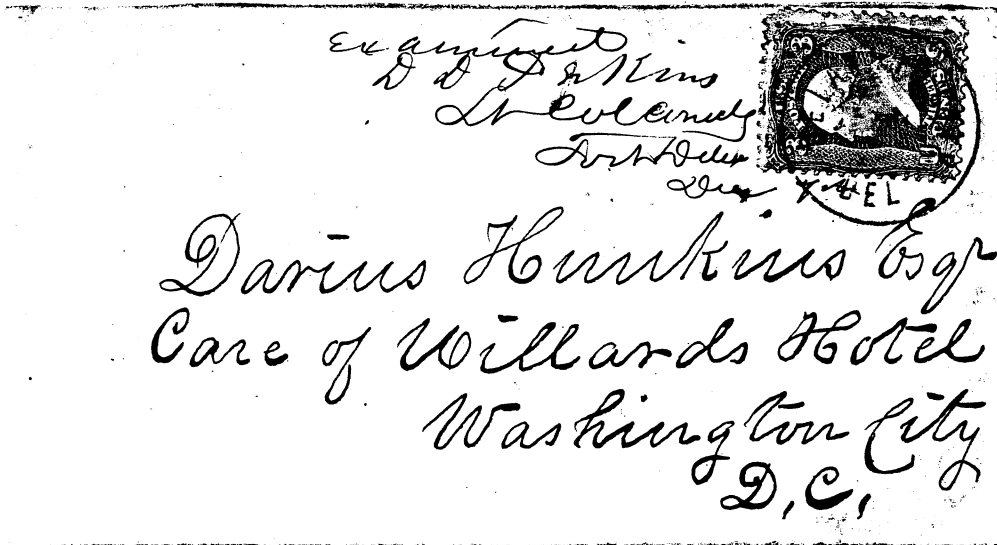 Examined
D D Perkins
Lt Col Comdg
Fort Del
Del
DEL
Darius Hunkins Esqr
Care of Willards Hotel
Washington City
D.C.